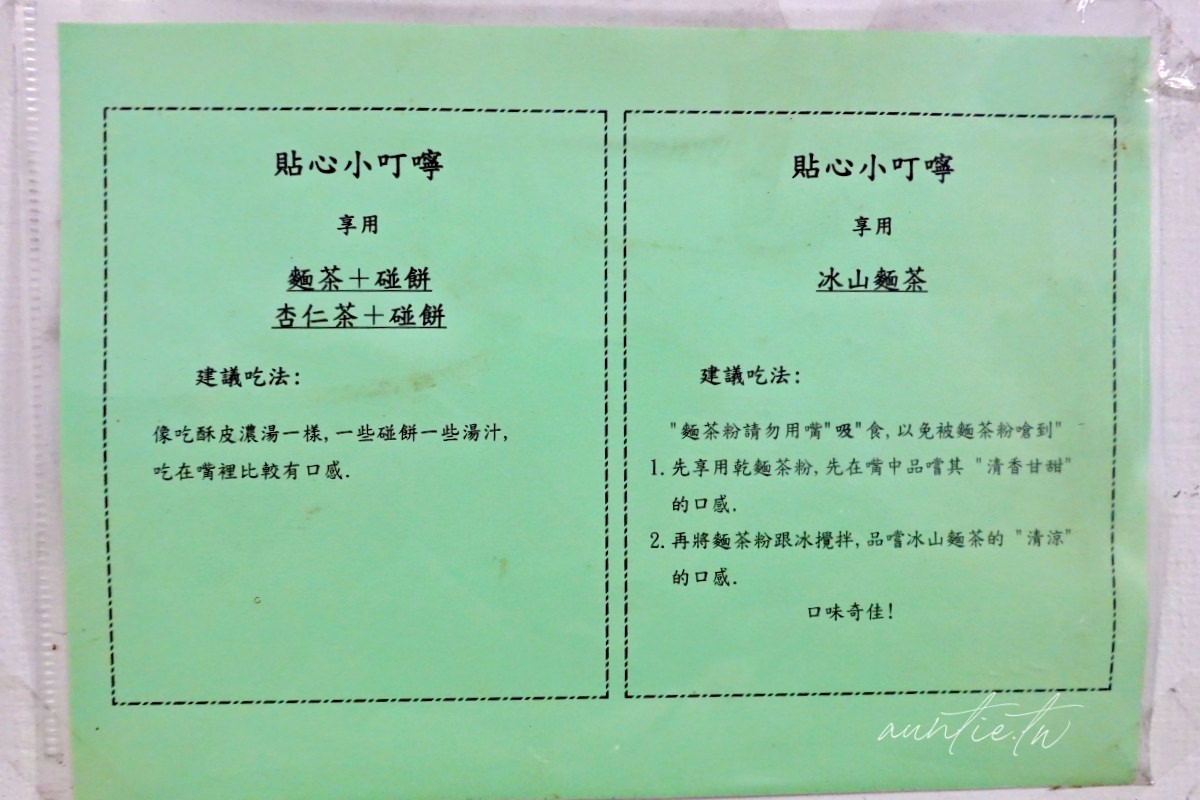 貼心小叮嚀
享用
麵茶＋碰餅
杏仁茶＋碰餅
建議吃法:
像吃酥皮濃湯一樣,一些碰餅一些湯汁,
吃在嘴裡比較有口感.
貼心小叮嚀
享用
冰山麵茶
建議吃法:
"麵茶粉請勿用嘴"吸"食,以免被麵茶粉嗆到"
1.先享用乾麵茶粉,先在嘴中品嚐其 "清香甘甜"
的口感.
2.再將麵茶粉跟冰攪拌,品嚐冰山麵茶的 "清涼"
的口感.
口味奇佳!
auntie.tw